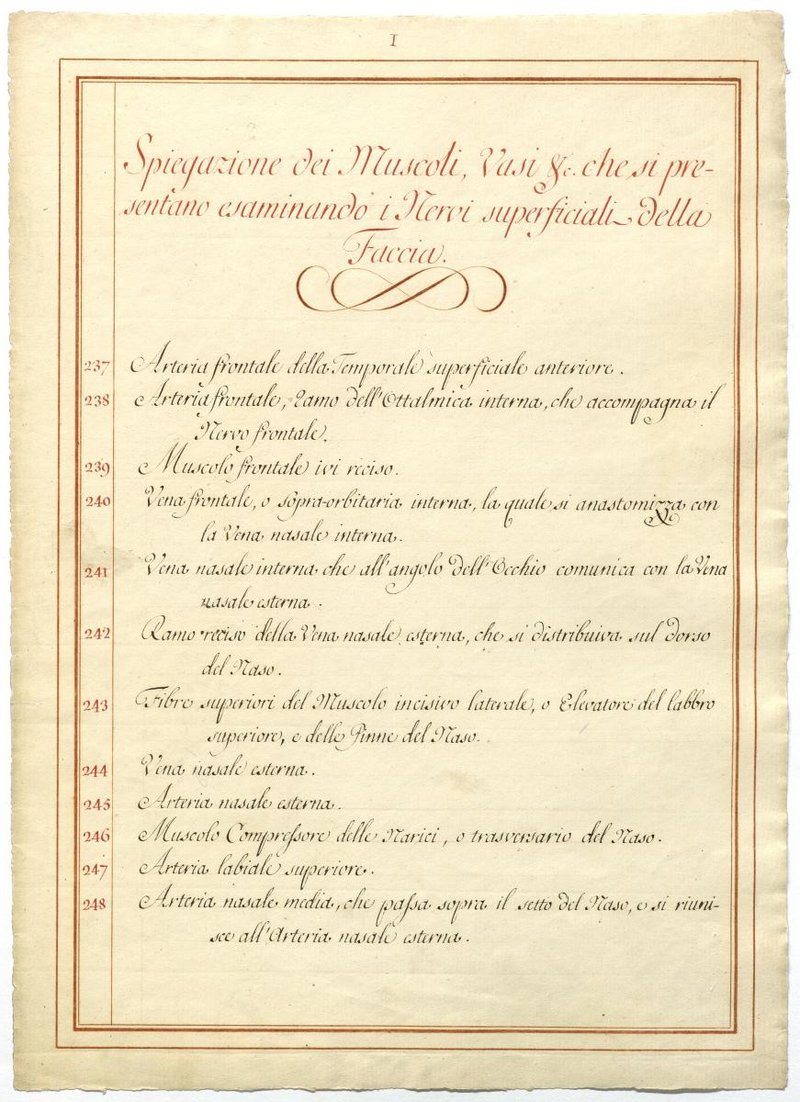 I
Spiegazione dei Muscoli, Vasi &c. che si pre-
sentano esaminando i Nervi superficiali della
Faccia.
237 Arteria frontale della Temporale superficiale anteriore.
238 Arteria frontale, Ramo dell'Ottalmica interna, che accompagna il
Nervo frontale.
239 Muscolo frontale ivi reciso.
240 Vena frontale, o sopra-orbitaria interna, la quale si anastomizza con
la Vena nasale interna.
241 Vena nasale interna che all'angolo dell'Occhio comunica con la Vena
nasale esterna.
242 Ramo reciso della Vena nasale esterna, che si distribuiva sul dorso
del Naso.
243 Fibre superiori del Muscolo incisivo laterale, o Elevatore del labbro
superiore, e delle Pinne del Naso.
244 Vena nasale esterna.
245 Arteria nasale esterna.
246 Muscolo Compreſsore delle Narici, o trasversario del Naso.
247 Arteria labiale superiore.
248 Arteria nasale media, che paſsa sopra il setto del Naso, e si riuni-
sce all'Arteria nasale esterna.